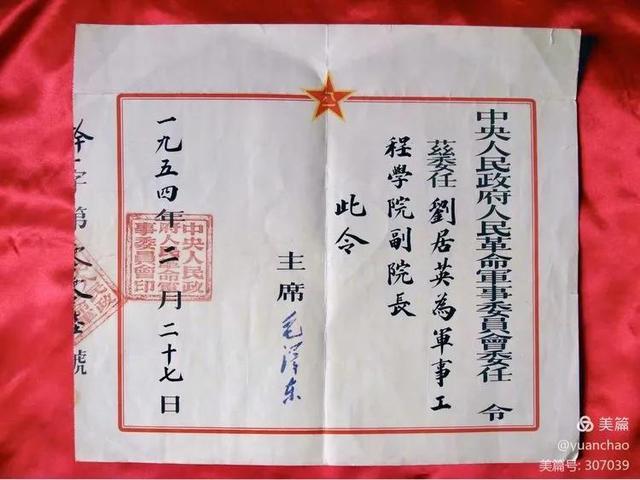 中央人民政府人民革命軍事委員會委任令
茲委任劉居英為軍事工
程學院副院長
此令
主席 毛澤东
一九五四年二月二十七日
中央人民政
府人民革命軍
事委員會印
字第
號
美篇
@yuanchao
美篇号: 307039